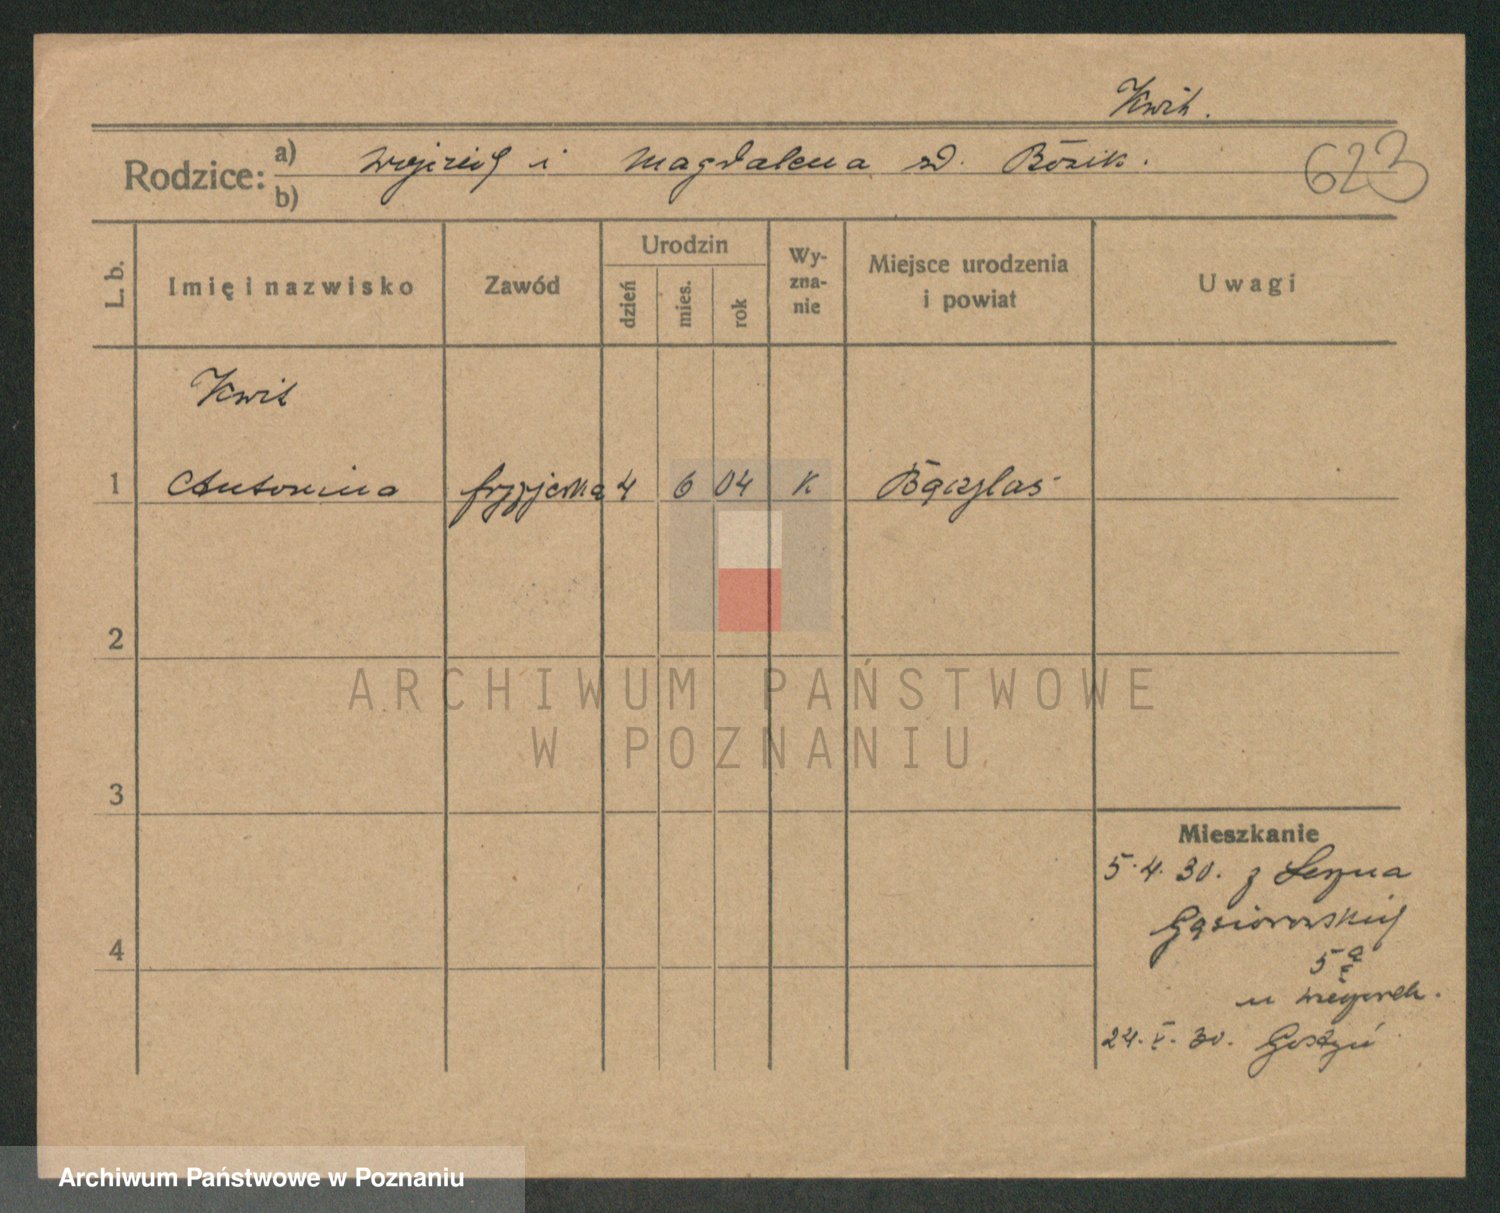 Kwit.
Rodzice: a) Wojciech i Magdalena zd. Bózik.
b)
623
L. b.
Imię i nazwisko
Zawód
Urodzin
dzień
mies.
rok
Wy-
zna-
nie
Miejsce urodzenia
i powiat
Uwagi
Kwit
1 Antonina fryzjerka 4 6 04 K Bączylas
2
3
4
Mieszkanie
5.4.30. z Leszna
Gąsiorowskich
5a
u
24.V.30. Gostyń
ARCHIWUM PAŃSTWOWE
W POZNANIU
Archiwum Państwowe w Poznaniu